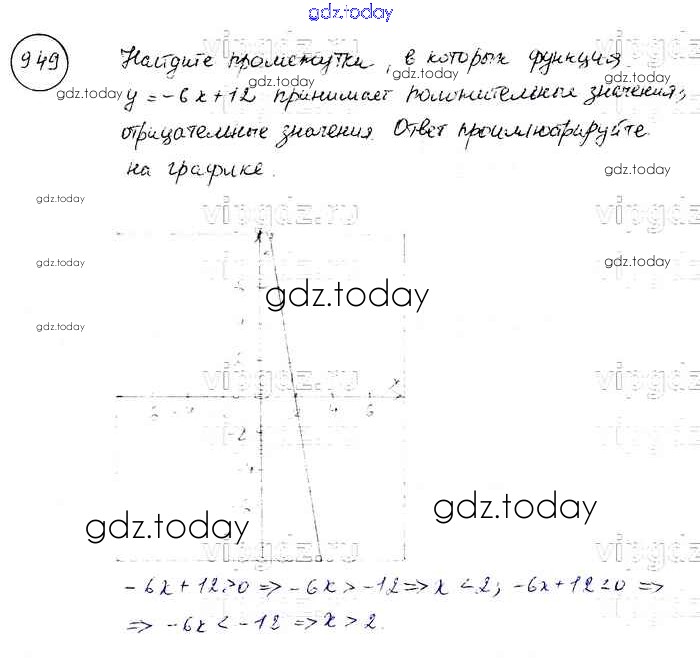 gdz.today
949
Найдите промежутки, в которых функция
gdz.today gdz.today gdz.today
y = -6x + 12 принимает положительные значения;
отрицательные значения. Ответ проиллюстрируйте
на графике.
gdz.today
gdz.today
vipgdz.ru vipgdz
gdz.today
gdz.today
gdz.today
gdz.today
vipgdz.ru vipgdz
x
2 4 6
-2
gdz.today
gdz.today
vipgdz.ru vipgdz
-6x + 12 > 0 => -6x > -12 => x < 2; -6x + 12 < 0 =>
=> -6x < -12 => x > 2.